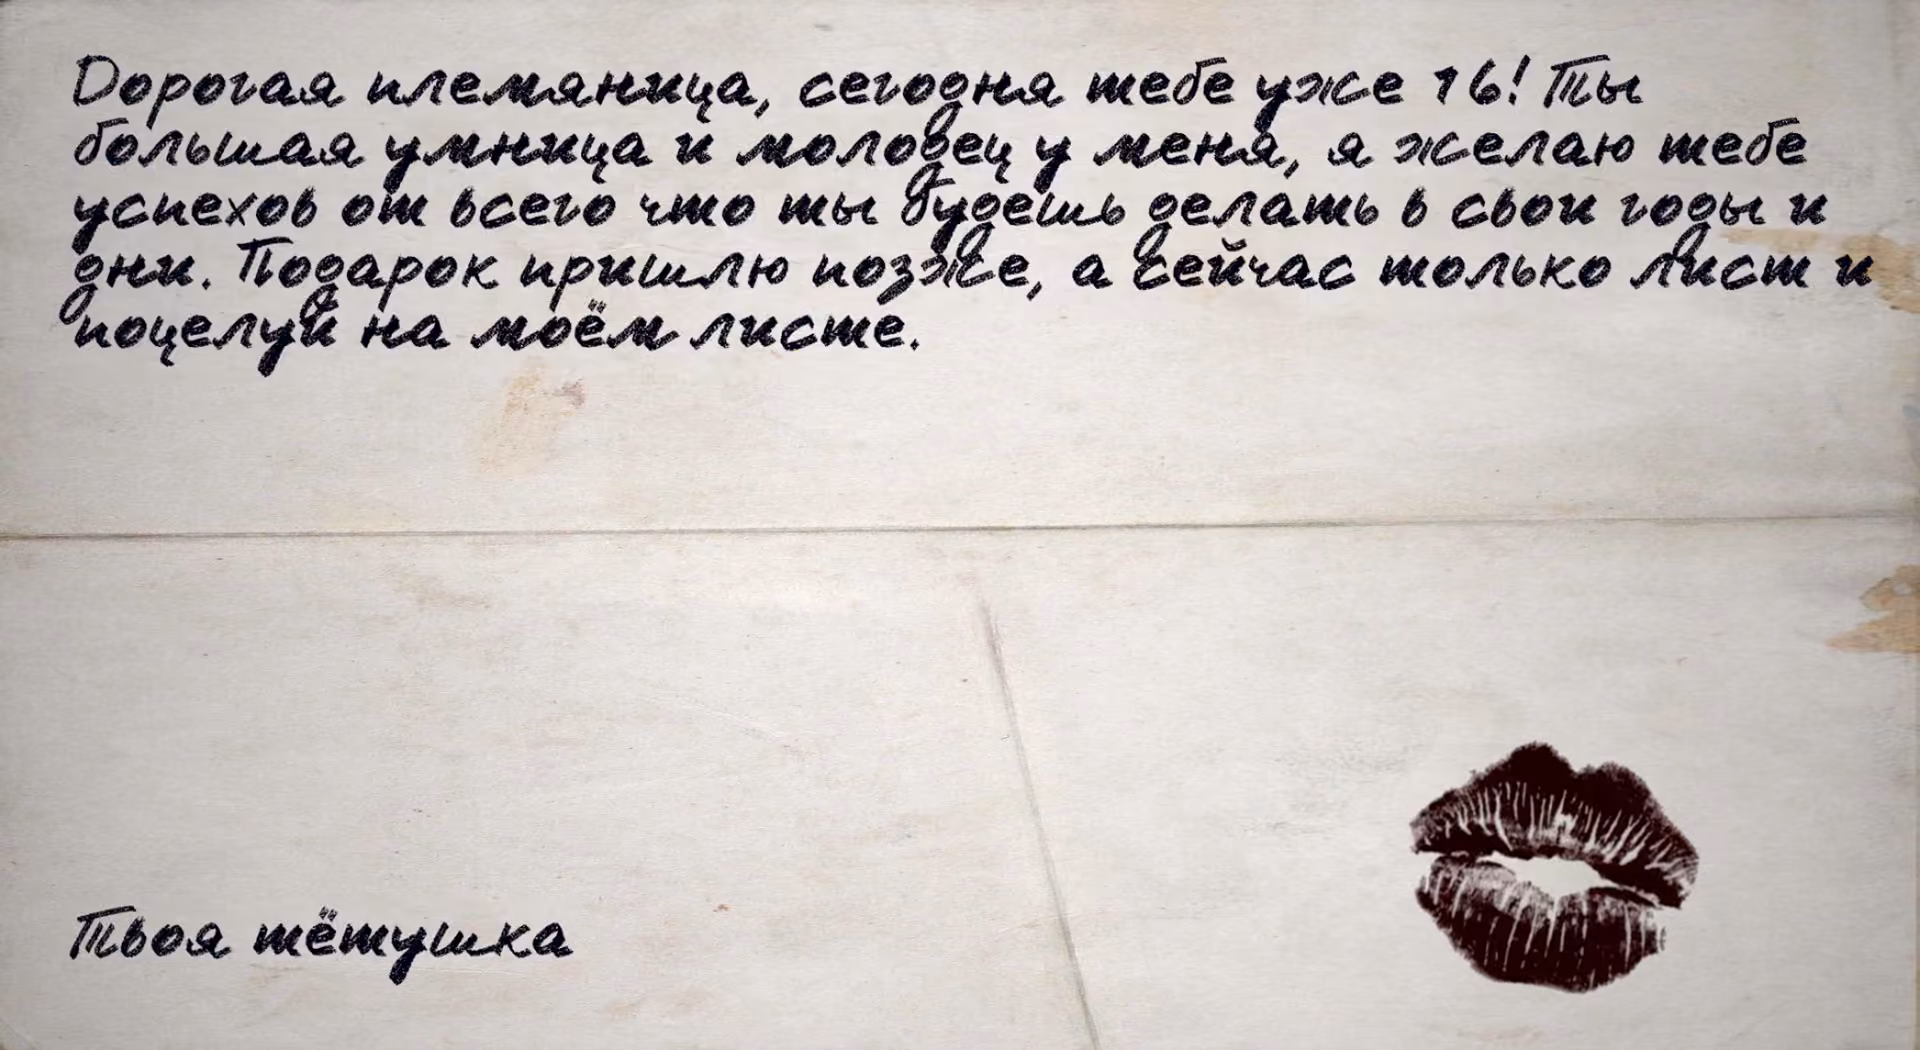 Дорогая племяница, сегодня тебе уже 16! Ты
большая умница и моловец у меня, я желаю тебе
успехов от всего что ты будешь делать в свои годы и
дни. Подарок пришлю позже, а сейчас только лист и
поцелуй на моём листе.
Твоя тётушка